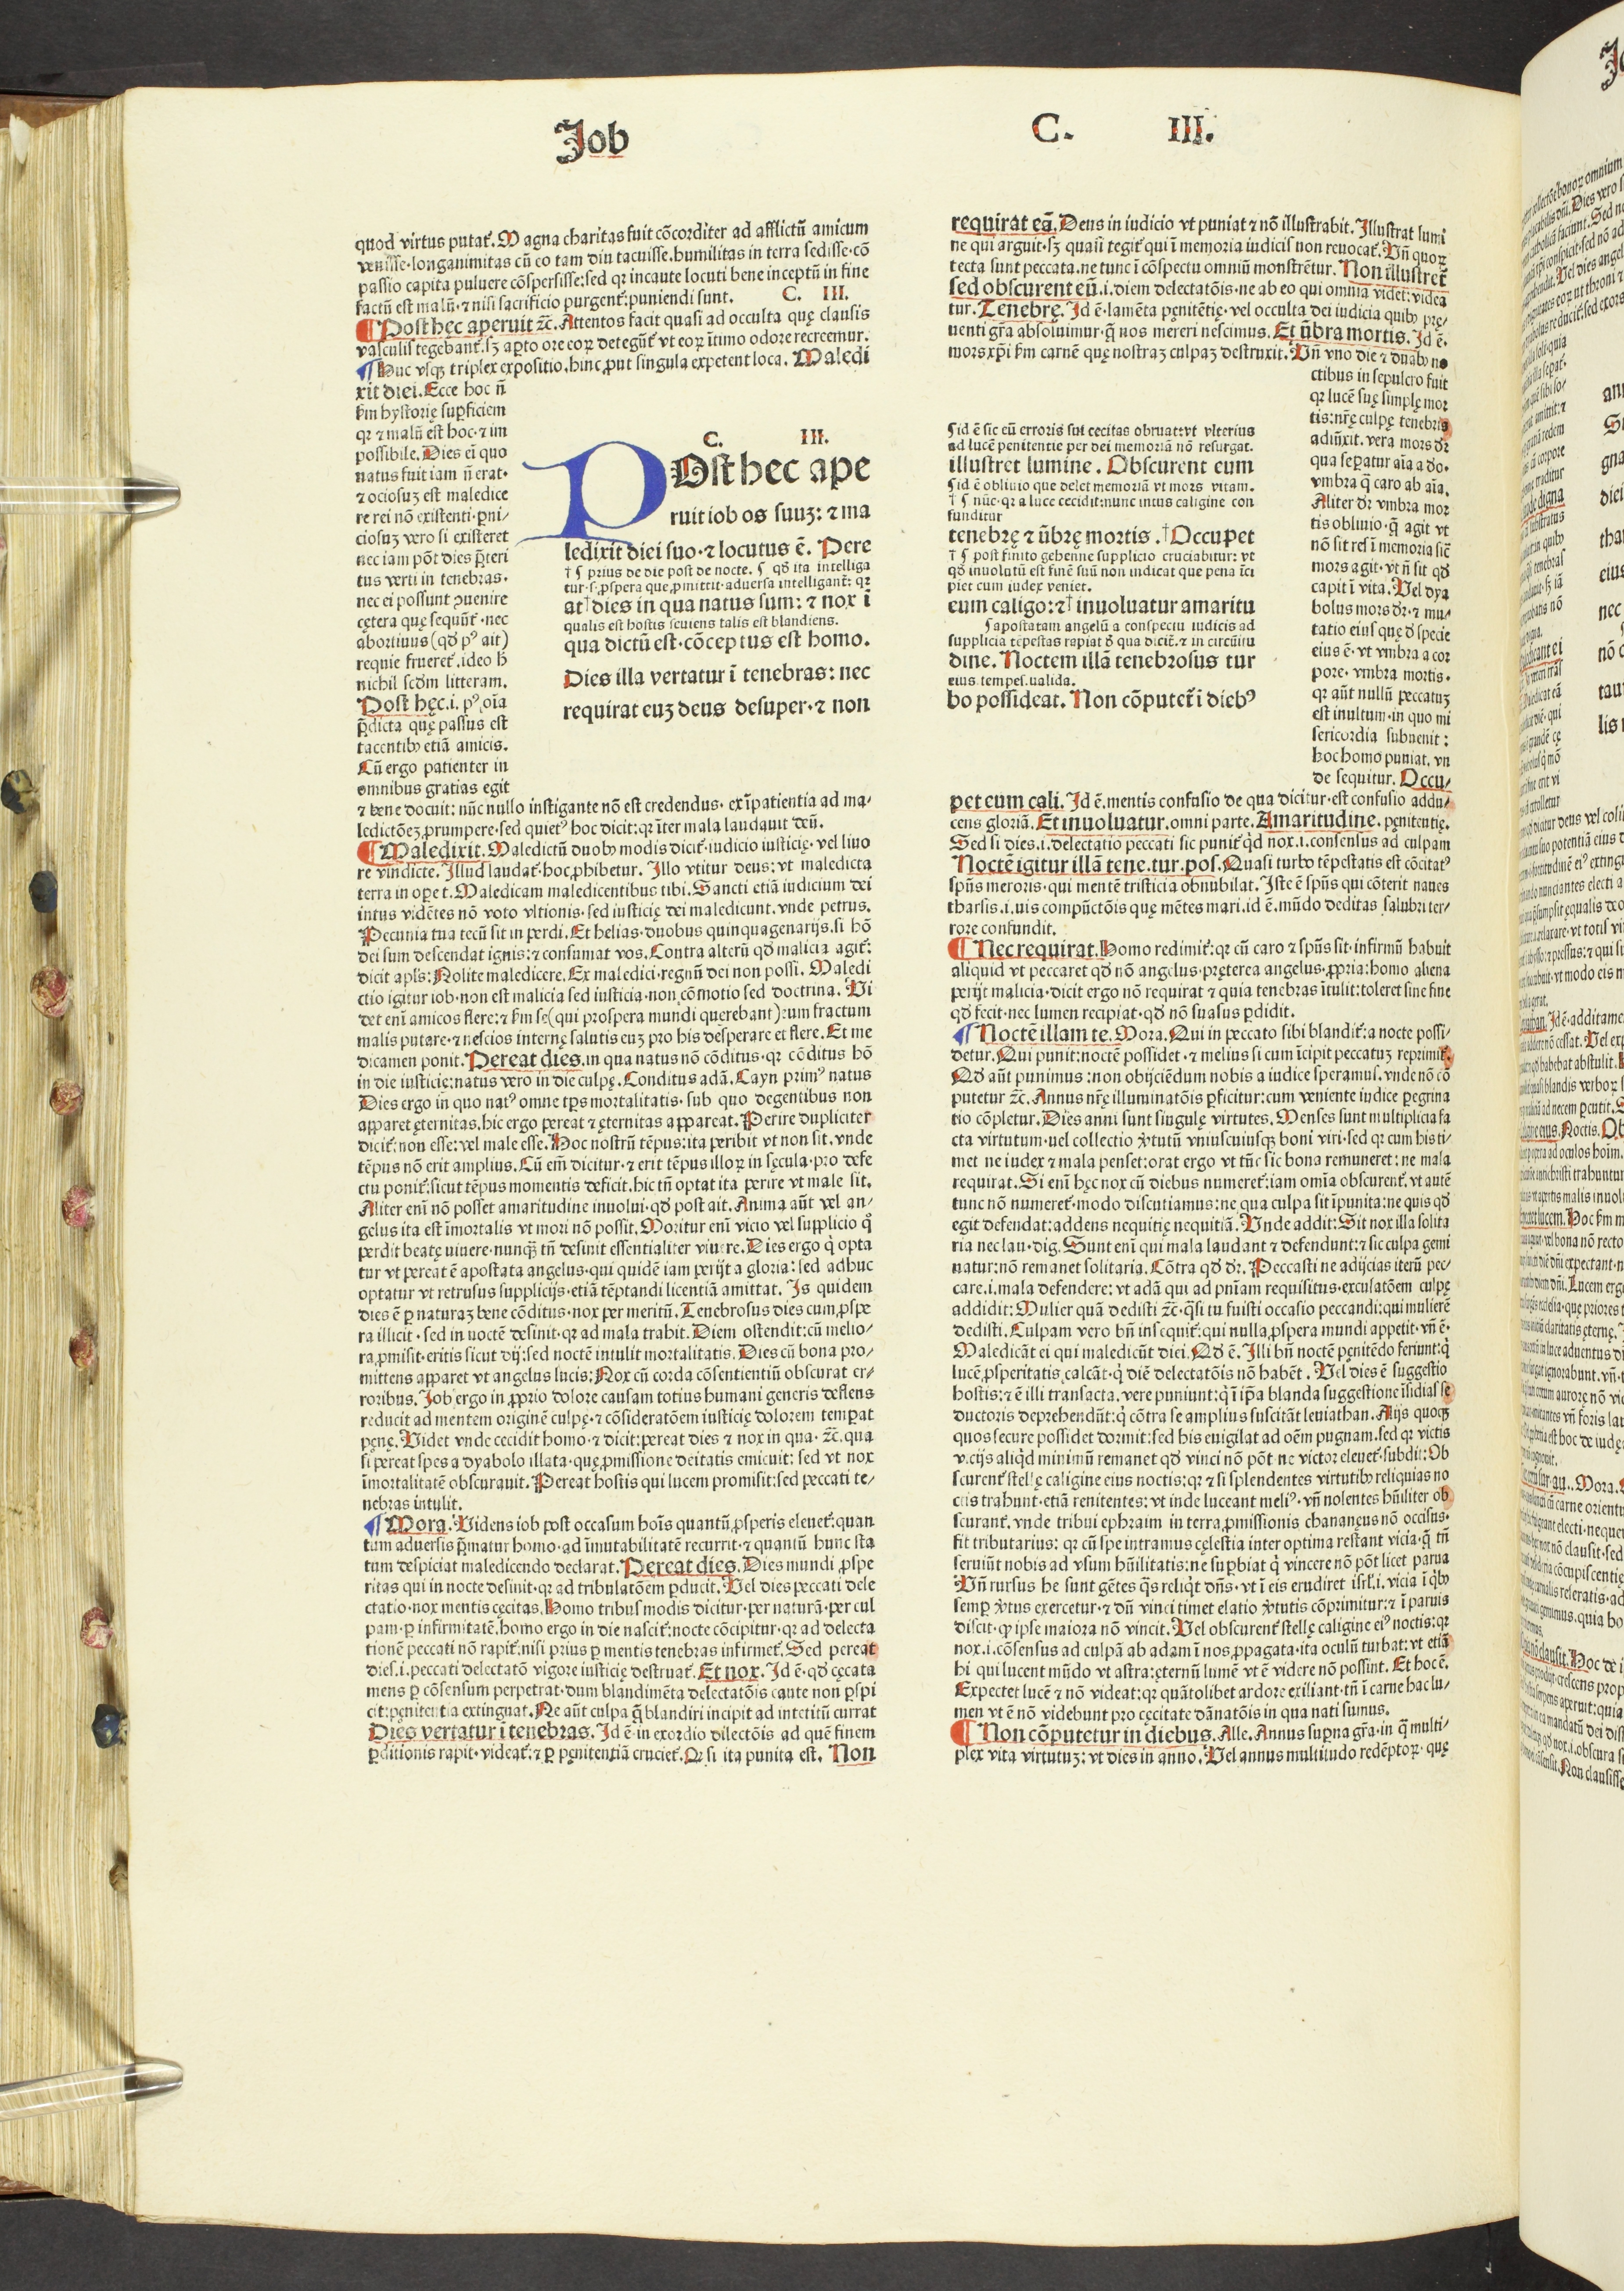 Job
C. III.
quod virtus putat᷑. Magna charitas fuit cōcorditer ad afflictū amicum
venisse·longanimitas cū eo tam diu tacuisse.humilitas in terra sedisse·cō
passio capita puluere cōspersisse:sed qꝛ incaute locuti bene inceptū in fine
factū est malū·⁊ nisi sacrificio purgent᷑:puniendi sunt. C. III.
¶ Post hęc aperuit ⁊c̄. Attentos facit quasi ad occulta quę clausis
vasculis tegebant᷑.sꝫ aꝑto ore eoꝝ detegūt᷑ vt eoꝝ ītimo odore recreemur.
¶ Huc vsqꝫ triplex expositio.hinc ꝓut singula expetent loca. Maledi
xit diei. Ecce hoc ñ
ẜm hystorię suꝑficiem
qꝛ ⁊ malū est hoc·⁊ im
possibile. Dies ei quo
natus fuit iam ñ erat·
⁊ ociosuꝫ est maledice
re rei nō existenti·ꝑni⸗
ciosuꝫ vero si existeret
nec iam pōt dies p̄teri
tus verti in tenebras·
nec ei possunt ꝯuenire
cętera quę sequūt᷑·nec
abortiuus (qď pꝰ ait)
requie frueret᷑.ideo ħ
nichil scďm litteram.
Post hęc.i. pꝰ oīa
p̄dicta quę passus est
tacentibꝫ etiā amicis.
Cū ergo patienter in
omnibus gratias egit
⁊ bene docuit: nūc nullo instigante nō est credendus· ex īpatientia ad ma⸗
ledictōeꝫ ꝓrumpere·sed quietꝰ hoc dicit:qꝛ īter mala laudauit deū.
C. III.
POst hec ape
ruit iob os suuꝫ: ⁊ ma
ledixit diei suo·⁊ locutus ē. Pere
† ¶ prius de die post de nocte. ¶ qď ita intelliga
tur·s·ꝓspera que ꝓmittit·aduersa intelligant᷑: qꝛ
at† dies in qua natus sum: ⁊ nox ī
qualis est hostis seuiens talis est blandiens.
qua dictū est·cōceptus est homo.
Dies illa vertatur ī tenebras: nec
requirat euꝫ deus desuper·⁊ non
¶ Maledixit. Maledictū duobꝫ modis dicit᷑·iudicio iusticię·vel liuo
re vindicte. Illud laudat᷑·hoc ꝓhibetur. Illo vtitur deus: vt maledicta
terra in oꝑe t. Maledicam maledicentibus tibi. Sancti etiā iudicium dei
intus vidētes nō voto vltionis·sed iusticię dei maledicunt.vnde petrus.
Pecunia tua tecū sit in perdi. Et helias·duobus quinquagenarijs.si hō
dei sum descendat ignis:⁊ consumat vos. Contra alterū qď malicia agit᷑:
dicit apl̄s: Nolite maledicere. Ex maledici·regnū dei non possi. Maledi
ctio igitur iob·non est malicia sed iusticia·non cōmotio sed doctrina. Vi
det enī amicos flere:⁊ ẜm se(qui prospera mundi querebant):um fractum
malis putare·⁊ nescios internę salutis euꝫ pro his desperare et flere. Et me
dicamen ponit. Pereat dies.in qua natus nō cōditus·qꝛ cōditus hō
in die iusticie:natus vero in die culpę. Conditus adā. Cayn primꝰ natus
Dies ergo in quo natꝰ omne tp̄s mortalitatis· sub quo degentibus non
apparet ęternitas.hic ergo pereat ⁊ ęternitas appareat. Perire dupliciter
dicit᷑: non esse: vel male esse. Hoc nostrū tēpus:ita peribit vt non sit.vnde
tēpus nō erit amplius. Cū em̄ dicitur·⁊ erit tēpus illoꝝ in sęcula·pro defe
ctu ponit᷑:sicut tēpus momentis deficit.hic tñ optat ita perire vt male sit.
Aliter enī nō posset amaritudine inuolui·qď post ait. Anima aūt vel an⸗
gelus ita est īmortalis vt mori nō possit. Moritur enī vicio vel supplicio q̊
perdit beatę viuere·nunqꝫ tñ desinit essentialiter viuere. Dies ergo q̇ opta
tur vt pereat ē apostata angelus·qui quidē iam perijt a gloria: sed adhuc
optatur vt retrusus supplicijs·etiā tēptandi licentiā amittat. Is quidem
dies ē ꝑ naturaꝫ bene cōditus·nox per meritū. Tenebrosus dies cum ꝓspe
ra illicit·sed in noctē desinit·qꝛ ad mala trahit. Diem ostendit:cū melio⸗
ra ꝓmisit·eritis sicut dij:sed noctē intulit mortalitatis. Dies cū bona pro⸗
mittens apparet vt angelus lucis: Nox cū corda cōsentientiū obscurat er⸗
roribus. Job ergo in ꝓprio dolore causam totius humani generis deflens
reducit ad mentem originē culpę·⁊ cōsideratōem iusticię dolorem temꝑat
pęnę. Videt vnde cecidit homo·⁊ dicit:pereat dies ⁊ nox in qua·⁊c̄.qua
si pereat spes a dyabolo illata·quę ꝓmissione deitatis emicuit: sed vt nox
īmortalitatē obscurauit. Pereat hostis qui lucem promisit:sed peccati te⸗
nebras intulit.
¶ Mora. Videns iob post occasum hoīs quantū ꝓsperis eleuet᷑:quan
tum aduersis p̄matur homo·ad īmutabilitatē recurrit·⁊ quantū hunc sta
tum despiciat maledicendo declarat. Pereat dies. Dies mundi ꝓspe
ritas qui in nocte desinit·qꝛ ad tribulatōem ꝑducit. Vel dies peccati dele
ctatio·nox mentis cęcitas. Homo tribus modis dicitur·per naturā·per cul
pam·ꝑ infirmitatē.homo ergo in die nascit᷑:nocte cōcipitur·qꝛ ad delecta
tionē peccati nō rapit᷑:nisi prius ꝑ mentis tenebras infirmet᷑. Sed pereat
dies.i.peccati delectatō vigore iusticię destruat᷑. Et nox. Id ē·qď cęcata
mens ꝑ cōsensum perpetrat·dum blandimēta delectatōis caute non ꝑspi
cit:pęnitentia extinguat. Ne aūt culpa q̄ blandiri incipit ad intetitū currat
Dies vertatur ī tenebras. Id ē·in exordio dilectōis ad quē finem
ꝑditionis rapit·videat᷑:⁊ ꝑ pęnitentiā cruciet᷑. Qꝛ si ita punita est. Non
requirat eā. Deus in iudicio vt puniat ⁊ nō illustrabit. Illustrat lumi
ne qui arguit·sꝫ quasi tegit᷑ qui ī memoria iudicis non reuocat᷑. Vñ quoꝝ
tecta sunt peccata.ne tunc ī cōspectu omniū monstrētur. Non illustret᷑
sed obscurent eū.i.diem delectatōis·ne ab eo qui omnia videt:videa
tur. Tenebrę. Id ē·lamēta pęnitētię·vel occulta dei iudicia quibꝫ pre⸗
uenti gr̄a absoluimur·q̄ nos mereri nescimus. Et ūbra mortis. Id ē·
mors xp̄i ẜm carnē quę nostraꝫ culpaꝫ destruxit. Vñ vno die ⁊ duabꝫ no
ctibus in sepulcro fuit
qꝛ lucē suę simplę mor
tis:nr̄ę culpę tenebris
adiūxit. vera mors dꝛ
qua seꝑatur aīa a do.
vmbra q̄ caro ab aīa.
Aliter dꝛ vmbra mor
tis obliuio·q̄ agit vt
nō sit res ī memoria sic̄
mors agit·vt ñ sit qď
capit ī vita. Vel dya
bolus mors dꝛ·⁊ mu⸗
tatio eius quę ď specie
eius ē·vt vmbra a cor
pore·vmbra mortis·
qꝛ aūt nullū peccatuꝫ
est inultum·in quo mi
sericordia subuenit:
hoc homo puniat, vn
de sequitur. Occu⸗
¶ id ē sic eū erroris sui cecitas obruat:vt vlterius
ad lucē penitentie per dei memoriā nō resurgat.
illustret lumine. Obscurent eum
¶ id ē obliuio que delet memoriā vt mors vitam.
† ¶ nūc·qꝛ a luce cecidit:nunc intus caligine con
funditur
tenebrę ⁊ ūbrę mortis. † Occupet
† ¶ post finito gehenne supplicio cruciabitur: vt
qď inuolutū est finē suū non indicat que pena īci
piet cum iudex veniet.
eum caligo:⁊† inuoluatur amaritu
¶ apostatam angelū a conspectu iudicis ad
supplicia tēpestas rapiat ď qua dicit᷑·⁊ in circūitu
dine. Noctem illā tenebrosus tur
eius.tempes.ualida.
bo possideat. Non cōputet᷑ ī diebꝰ
pet eum cali. Id ē.mentis confusio de qua dicitur·est confusio addu⸗
cens gloriā. Et inuoluatur.omni parte. Amaritudine. pęnitentię.
Sed si dies.i.delectatio peccati sic punit᷑ q̇d nox.i.consensus ad culpam
Noctē igitur illā tene.tur.pos. Quasi turbo tēpestatis est cōcitatꝰ
sp̄us meroris·qui mentē tristicia obnubilat. Iste ē sp̄us qui cōterit naues
tharsis.i.uis compūctōis quę mētes mari.id ē.mūdo deditas salubri ter⸗
rore confundit.
¶ Nec requirat. Homo redimit᷑:qꝛ cū caro ⁊ sp̄us sit·infirmū habuit
aliquid vt peccaret qď nō angelus·pręterea angelus ꝓpria:homo aliena
perijt malicia·dicit ergo nō requirat ⁊ quia tenebras ītulit:toleret sine fine
qď fecit·nec lumen recipiat·qď nō suasus ꝑdidit.
¶ Noctē illam te. Mora. Qui in peccato sibi blandit᷑:a nocte possi⸗
detur. Qui punit:noctē possidet·⁊ melius si cum īcipit peccatuꝫ reprimit᷑.
Qď aūt punimus:non obijciēdum nobis a iudice speramus.vnde nō cō
putetur ⁊c̄. Annus nr̄ę illuminatōis ꝑficitur:cum veniente iudice ꝑegrina
tio cōpletur. Dies anni sunt singulę virtutes. Menses sunt multiplicia fa
cta virtutum·uel collectio ṽtutū vniuscuiusqꝫ boni viri·sed qꝛ cum his ti⸗
met ne iudex ⁊ mala penset:orat ergo vt tūc sic bona remuneret: ne mala
requirat. Si enī hęc nox cū diebus numeret᷑:iam omīa obscurent᷑.vt autē
tunc nō numeret᷑·modo discutiamus:ne qua culpa sit īpunita:ne quis qď
egit defendat:addens nequitię nequitiā. Vnde addit: Sit nox illa solita
ria nec lau·dig. Sunt enī qui mala laudant ⁊ defendunt:⁊ sic culpa gemi
natur:nō remanet solitaria. Cōtra qď dꝛ. Peccasti ne adijcias iterū pec⸗
care.i.mala defendere: vt adā qui ad pn̄iam requisitus·excusatōem culpę
addidit: Mulier quā dedisti ⁊c̄.q̄si tu fuisti occasio peccandi:qui mulierē
dedisti. Culpam vero bñ insequit᷑:qui nulla ꝓspera mundi appetit·vñ ē·
Maledicāt ei qui maledicūt diei. Qď ē. Illi bñ noctē pęnitēdo feriunt:q̇
lucē ꝓsperitatis calcāt·q̇ diē delectatōis nō habēt. Vel dies ē suggestio
hostis:⁊ ē illi transacta.vere puniunt:q̇ ī ip̄a blanda suggestione īsidias se
ductoris deprehendūt:q̇ cōtra se amplius suscitāt leuiathan. Alijs quoqꝫ
quos secure possidet dormit:sed his euigilat ad oēm pugnam.sed qꝛ victis
vicijs aliq̇d minimū remanet qď vinci nō pōt ne victor eleuet᷑·subdit: Ob
scurent᷑ stellę caligine eius noctis:qꝛ ⁊ si splendentes virtutibꝫ reliquias no
ctis trahunt·etiā renitentes: vt inde luceant meliꝰ·vñ nolentes hūiliter ob
scurant᷑. vnde tribui ephraim in terra ꝓmissionis chananęus nō occisus·
fit tributarius: qꝛ cū spe intramus cęlestia inter optima restant vicia·q̄ tñ
seruiūt nobis ad vsum hūilitatis:ne suꝑbiat q̇ vincere nō pōt licet parua
Vñ rursus he sunt gētes q̄s reliq̇t dn̄s·vt ī eis erudiret isrl̄.i. vicia ī qībꝫ
semꝑ ṽtus exercetur·⁊ dū vinci timet elatio ṽtutis cōprimitur:⁊ ī paruis
discit·ꝙ ipse maiora nō vincit. Vel obscurent᷑ stellę caligine eiꝰ noctis:qꝛ
nox.i.cōsensus ad culpā ab adam ī nos ꝓpagata·ita oculū turbat:vt etiā
hi qui lucent mūdo vt astra:ęternū lumē vt ē videre nō possint. Et hoc ē.
Expectet lucē ⁊ nō videat:qꝛ quātolibet ardore exiliant·tñ ī carne hac lu⸗
men vt ē nō videbunt pro cęcitate dānatōis in qua nati sumus.
¶ Non cōputetur in diebus. Alle. Annus suꝑna gr̄a·in q̄ multi⸗
plex vita virtutuꝫ: vt dies in anno. Vel annus multitudo redēptoꝝ·quę